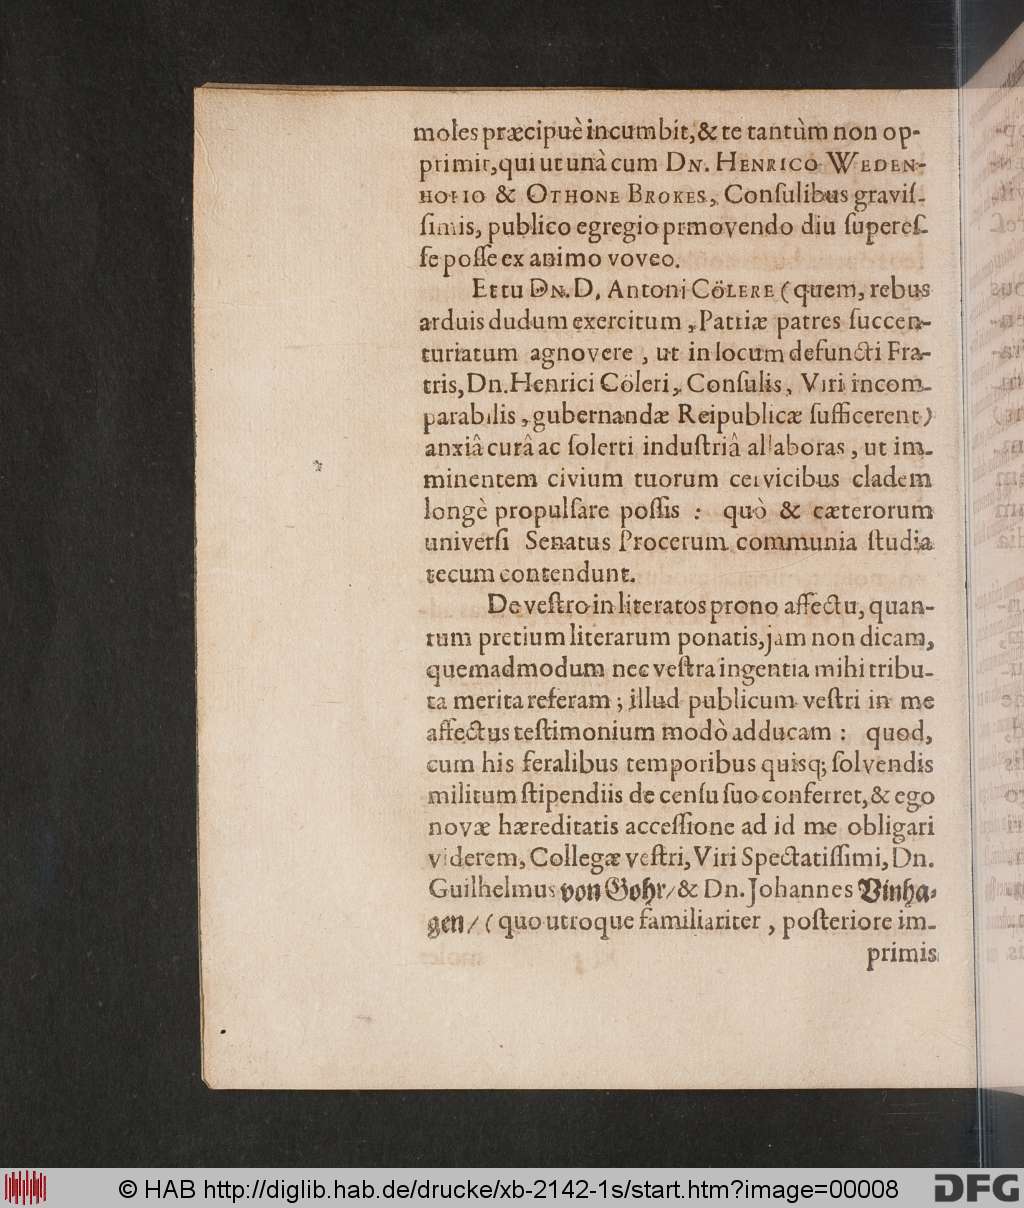 moles præcipuè incumbit, & te tantùm non op-
primit, qui ut unà cum Dn. Henrico Weden-
hofio & Othone Brokes, Conſulibus graviſ-
ſimis, publico egregio prmovendo diu ſupereſ-
ſe poſſe ex animo voveo.
Et tu Dn. D. Antoni Cölere (quem, rebus
arduis dudum exercitum, Patriæ patres ſuccen-
turiatum agnovere, ut in locum defuncti Fra-
tris, Dn. Henrici Cöleri, Conſulis, Viri incom-
parabilis, gubernandæ Reipublicæ ſufficerent)
anxiâ curâ ac ſolerti induſtriâ allaboras, ut im-
minentem civium tuorum cervicibus cladem
longè propulſare poſſis : quò & cæterorum
univerſi Senatus Procerum communia ſtudia
tecum contendunt.
De veſtro in literatos prono affectu, quan-
tum pretium literarum ponatis, jam non dicam,
quemadmodum nec veſtra ingentia mihi tribu-
ta merita referam ; illud publicum veſtri in me
affectus teſtimonium modò adducam : quod,
cum his feralibus temporibus quisq; ſolvendis
militum ſtipendiis de cenſu ſuo conferret, & ego
novæ hæreditatis acceſſione ad id me obligari
viderem, Collegæ veſtri, Viri Spectatiſſimi, Dn.
Guilhelmus von Gohr/ & Dn. Johannes Vinha-
gen/ (quo utroque familiariter, poſteriore im-
primis
© HAB http://diglib.hab.de/drucke/xb-2142-1s/start.htm?image=00008
DFG